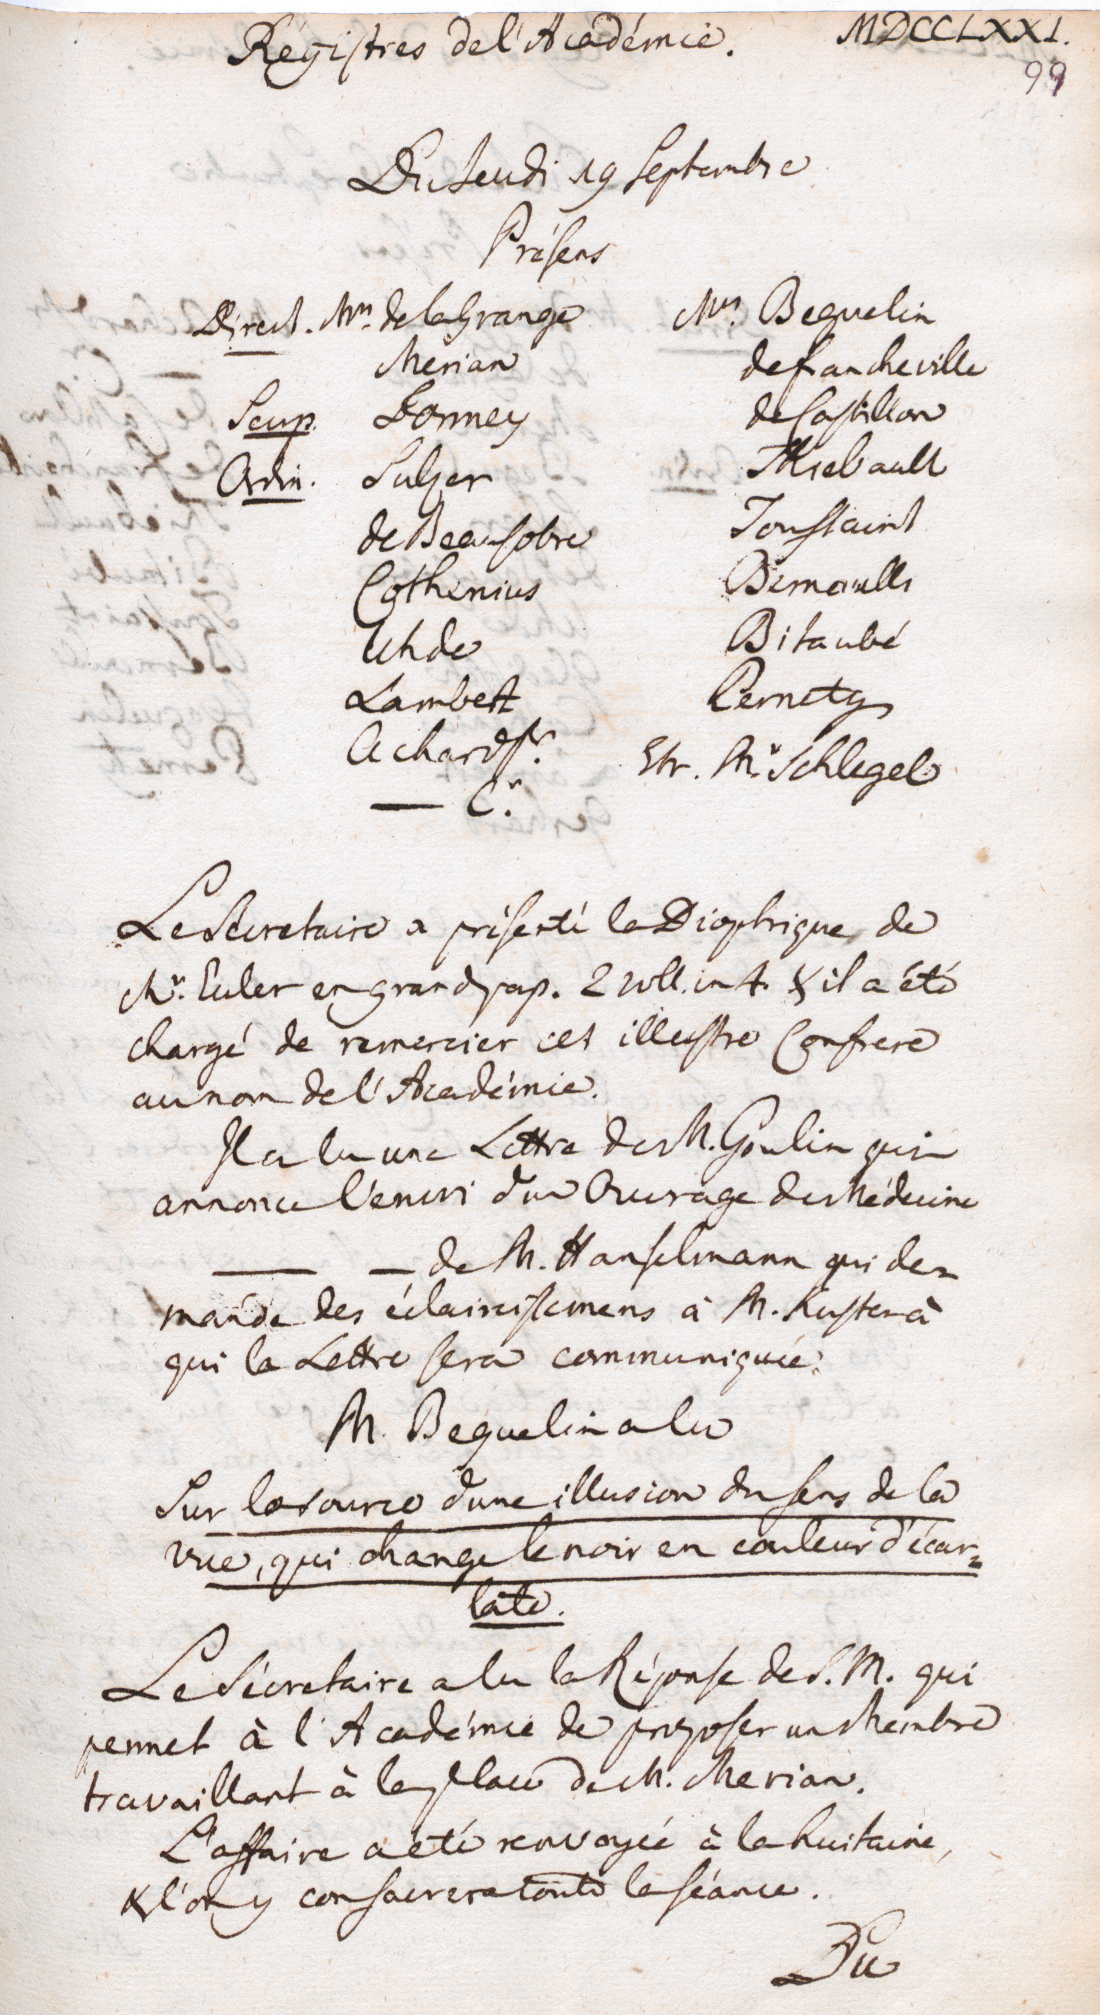 Régistres de l'Académie. MDCCLXXI.
99
Du Jeudi 19 Septembre
Présens
Direct. Mrs. de la Grange
Merian
Scup. Formey
Ordin. Sulzer
de Beausobre
Cothenius
Uhde
Lambert
Achard Fr.
— C.r
Mrs. Beguelin
de Francheville
de Castillon
Thiebault
Toussaint
Bernoulli
Bitaubé
Pernety
Etr. Mr. Schlegel
Le Sécretaire a présenté la Dioptrique de
Mr. Euler en grand pap. 2 voll. in 4. & il a été
chargé de remercier cet illustre Confrere
au nom de l'Académie.
Il a lu une Lettre de M. Goulin qui
annonce l'envoi d'un Ouvrage de Médecine
— — de M. Hanselmann qui de=
mande des éclaircissemens à M. Kuster à
qui la Lettre sera communiquée.
M. Beguelin a lu
Sur la source d'une illusion du sens de la
vue, qui change le noir en couleur d'écar=
late.
Le Sécretaire a lu la Réponse de S. M. qui
permet à l'Académie de proposer un Membre
travaillant à la place de M. Merian.
L'affaire a été renvoyée à la huitaine,
& l'on y consacrera toute la séance.
Du